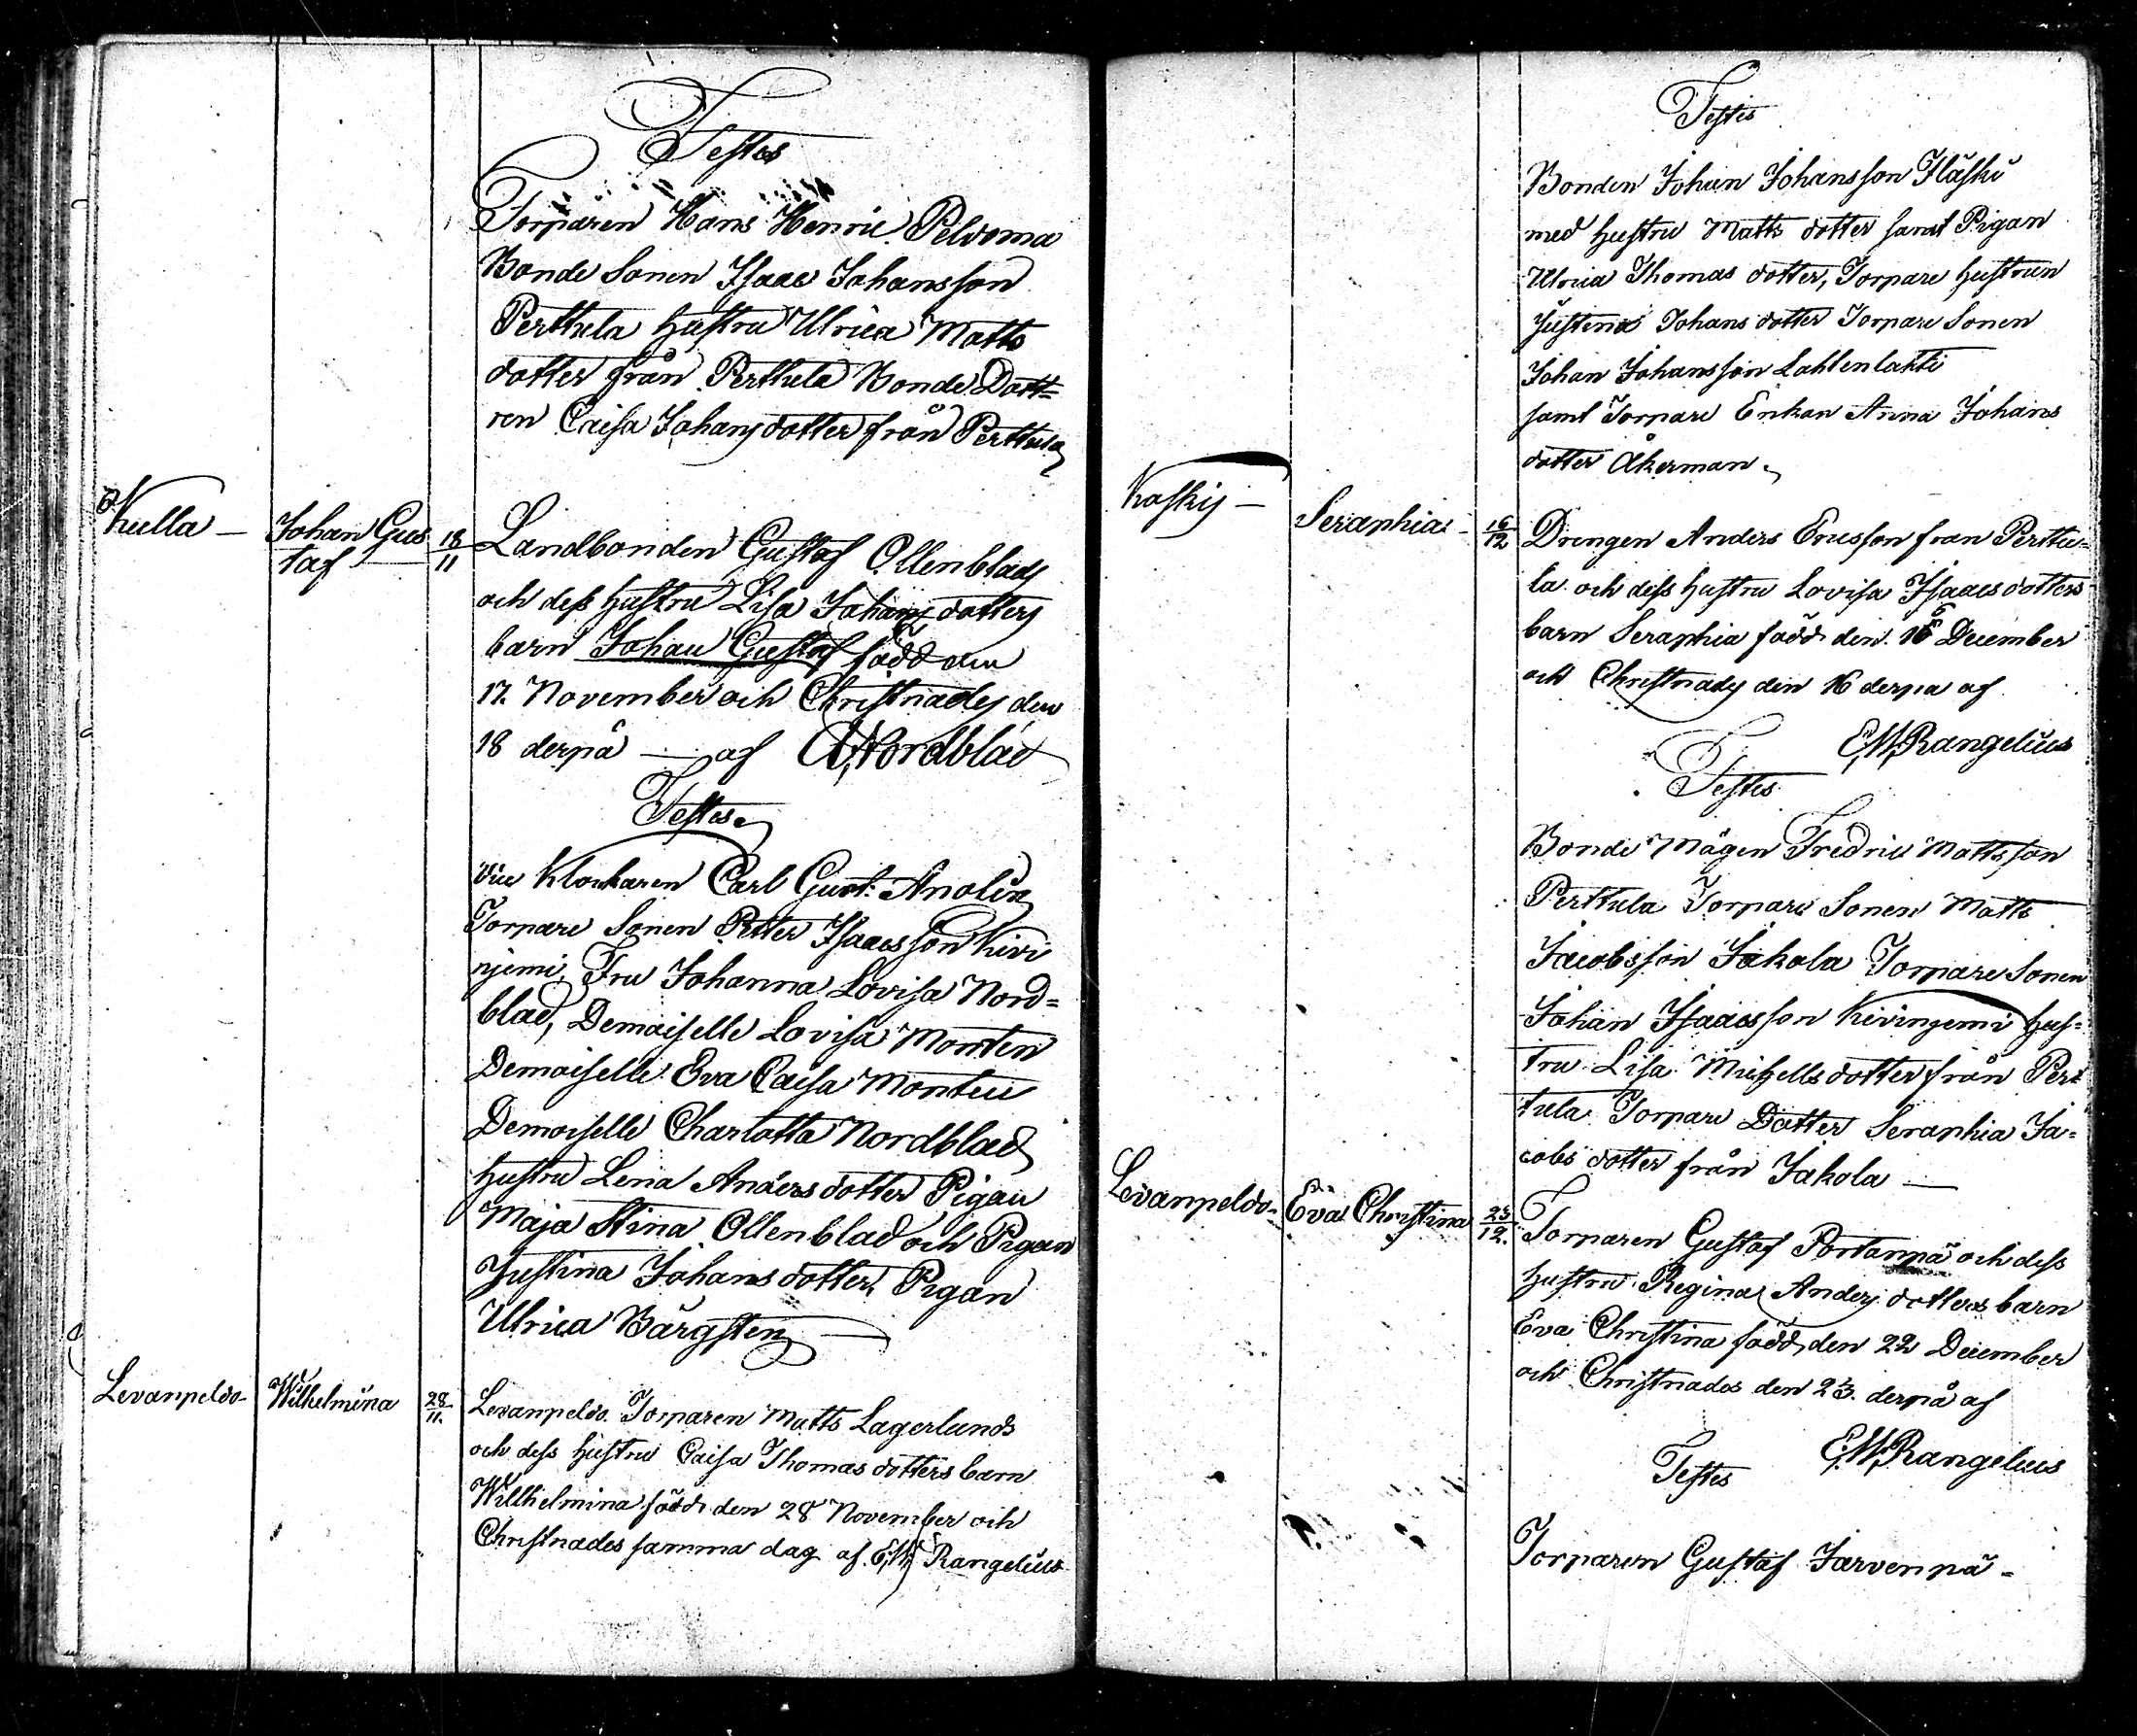 Testes
Torparen Hans Henric Peldoma
Bonde Sonen Isaac Johansson
Perttula hustru Ulrica Matts
dotter från Perttula Bonde Dott=
ren Caisa Johansdotter från Perttula
Kulla — Johan Gus
taf — 18/11
Landbonden Gustaf Ollenblads
och dess hustru Lisa Johans dotters
barn Johan Gustaf född den
17. November och Christnades den
18 derpå — af A, Nordblad
Testes
vice Klockaren Carl Gust: Anolin
Torpare Sonen Petter Isaacsson Kivi
njemi, Fru Johanna Lovisa Nord=
blad, Demoiselle Lovisa Monten
Demoiselle Eva Caisa Monten
Demoiselle Charlotta Nordblad
hustru Lena Anders dotter Pigan
Maja Stina Ollenblad och Pigan
Justina Johans dotter, Pigan
Ulrica Bärgsten —
Levanpeldo- Wilhelmina 28/11.
Levanpeldo. Torparen Matts Lagerlunds
och dess hustru Caisa Thomas dotters barn
Willhelmina född den 28 November och
Christnades samma dag af E,W, Rangelius
Testes
Bonden Johan Johansson Fläski
med hustru Matts dotter samt Pigan
Ulrica Thomas dotter, Torpare hustrun
Justina Johans dotter Torpare Sonen
Johan Johansson Lahtenlahti
samt Torpare Enkan Anna Johans
dotter Åkerman
Koskis — Seraphia - 16/12
Drengen Anders Ericsson från Perttu=
la och dess hustru Lovisa Isaacs dotters
barn Seraphia född den 16 December
och Christnades den 16 derpå af
E,W,Rangelius
Testes
Bonde Mågen Fredric Mattsson
Perttula Torpare Sonen Matts
Jacobsson Jakola Torpare Sonen
Johan Isaacsson Kivinjemi hus=
tru Lisa Michells dotter från Pert
tula Torpare Dotter Seraphia Ja=
cobs dotter från Jakola —
Levanpeldo- Eva Christina 23/12.
Torparen Gustaf Portanpä och dess
hustru Regina Anders dotters barn
Eva Christina född den 22 December
och Christnades den 23. derpå af
E,W,Rangelius
Testes
Torparen Gustaf Järvenpä -